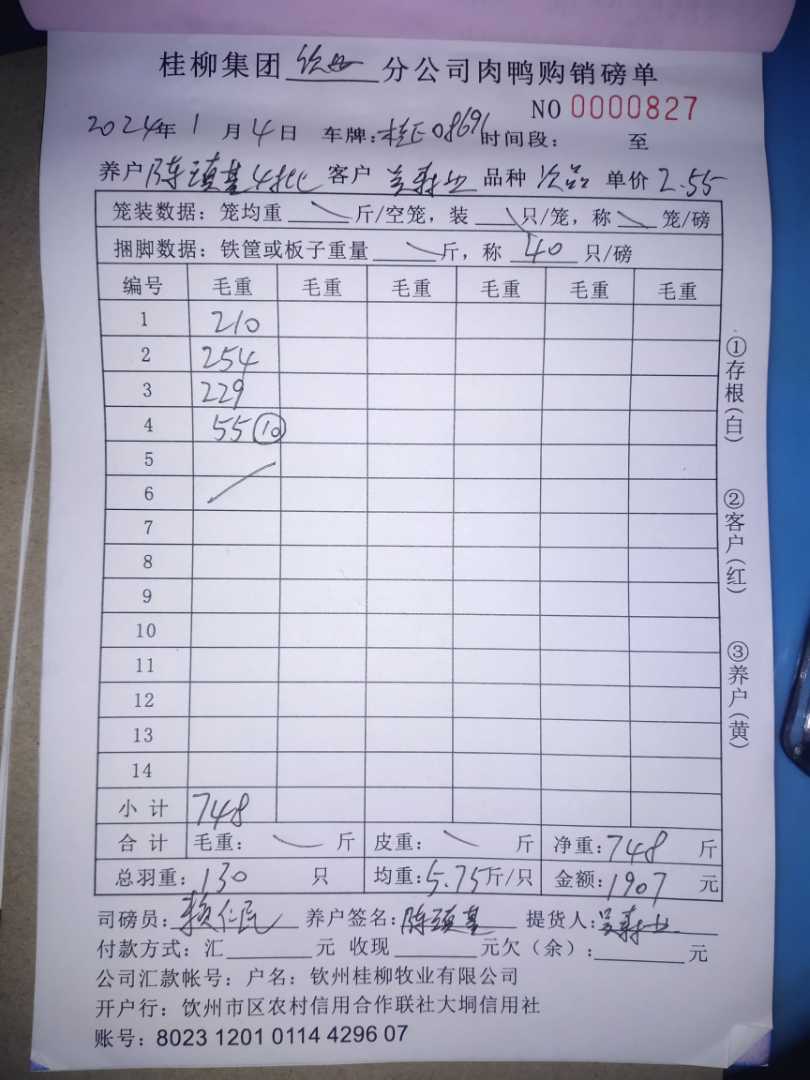 桂柳集团钦州分公司肉鸭购销磅单
NO 0000827
2024年1月4日 车牌:桂E08691时间段: 至
养户陈瑱基4批 客户 吴 品种 次品 单价 2.55
笼装数据: 笼均重 斤/空笼, 装 只/笼, 称 笼/磅
捆脚数据: 铁筐或板子重量 斤, 称 40 只/磅
编号 毛重 毛重 毛重 毛重 毛重 毛重
1 210
2 254
3 229
4 55 ⑩
5
6
7
8
9
10
11
12
13
14
小计 748
合计 毛重: 斤 皮重: 斤 净重:748 斤
总羽重:130 只 均重:5.75斤/只 金额:1907 元
司磅员:赖仁民 养户签名:陈瑱基 提货人:吴
付款方式: 汇 元 收现 元欠(余): 元
公司汇款帐号: 户名: 钦州桂柳牧业有限公司
开户行: 钦州市区农村信用合作联社大垌信用社
账号: 8023 1201 0114 4296 07
①存根(白)
②客户(红)
③养户(黄)